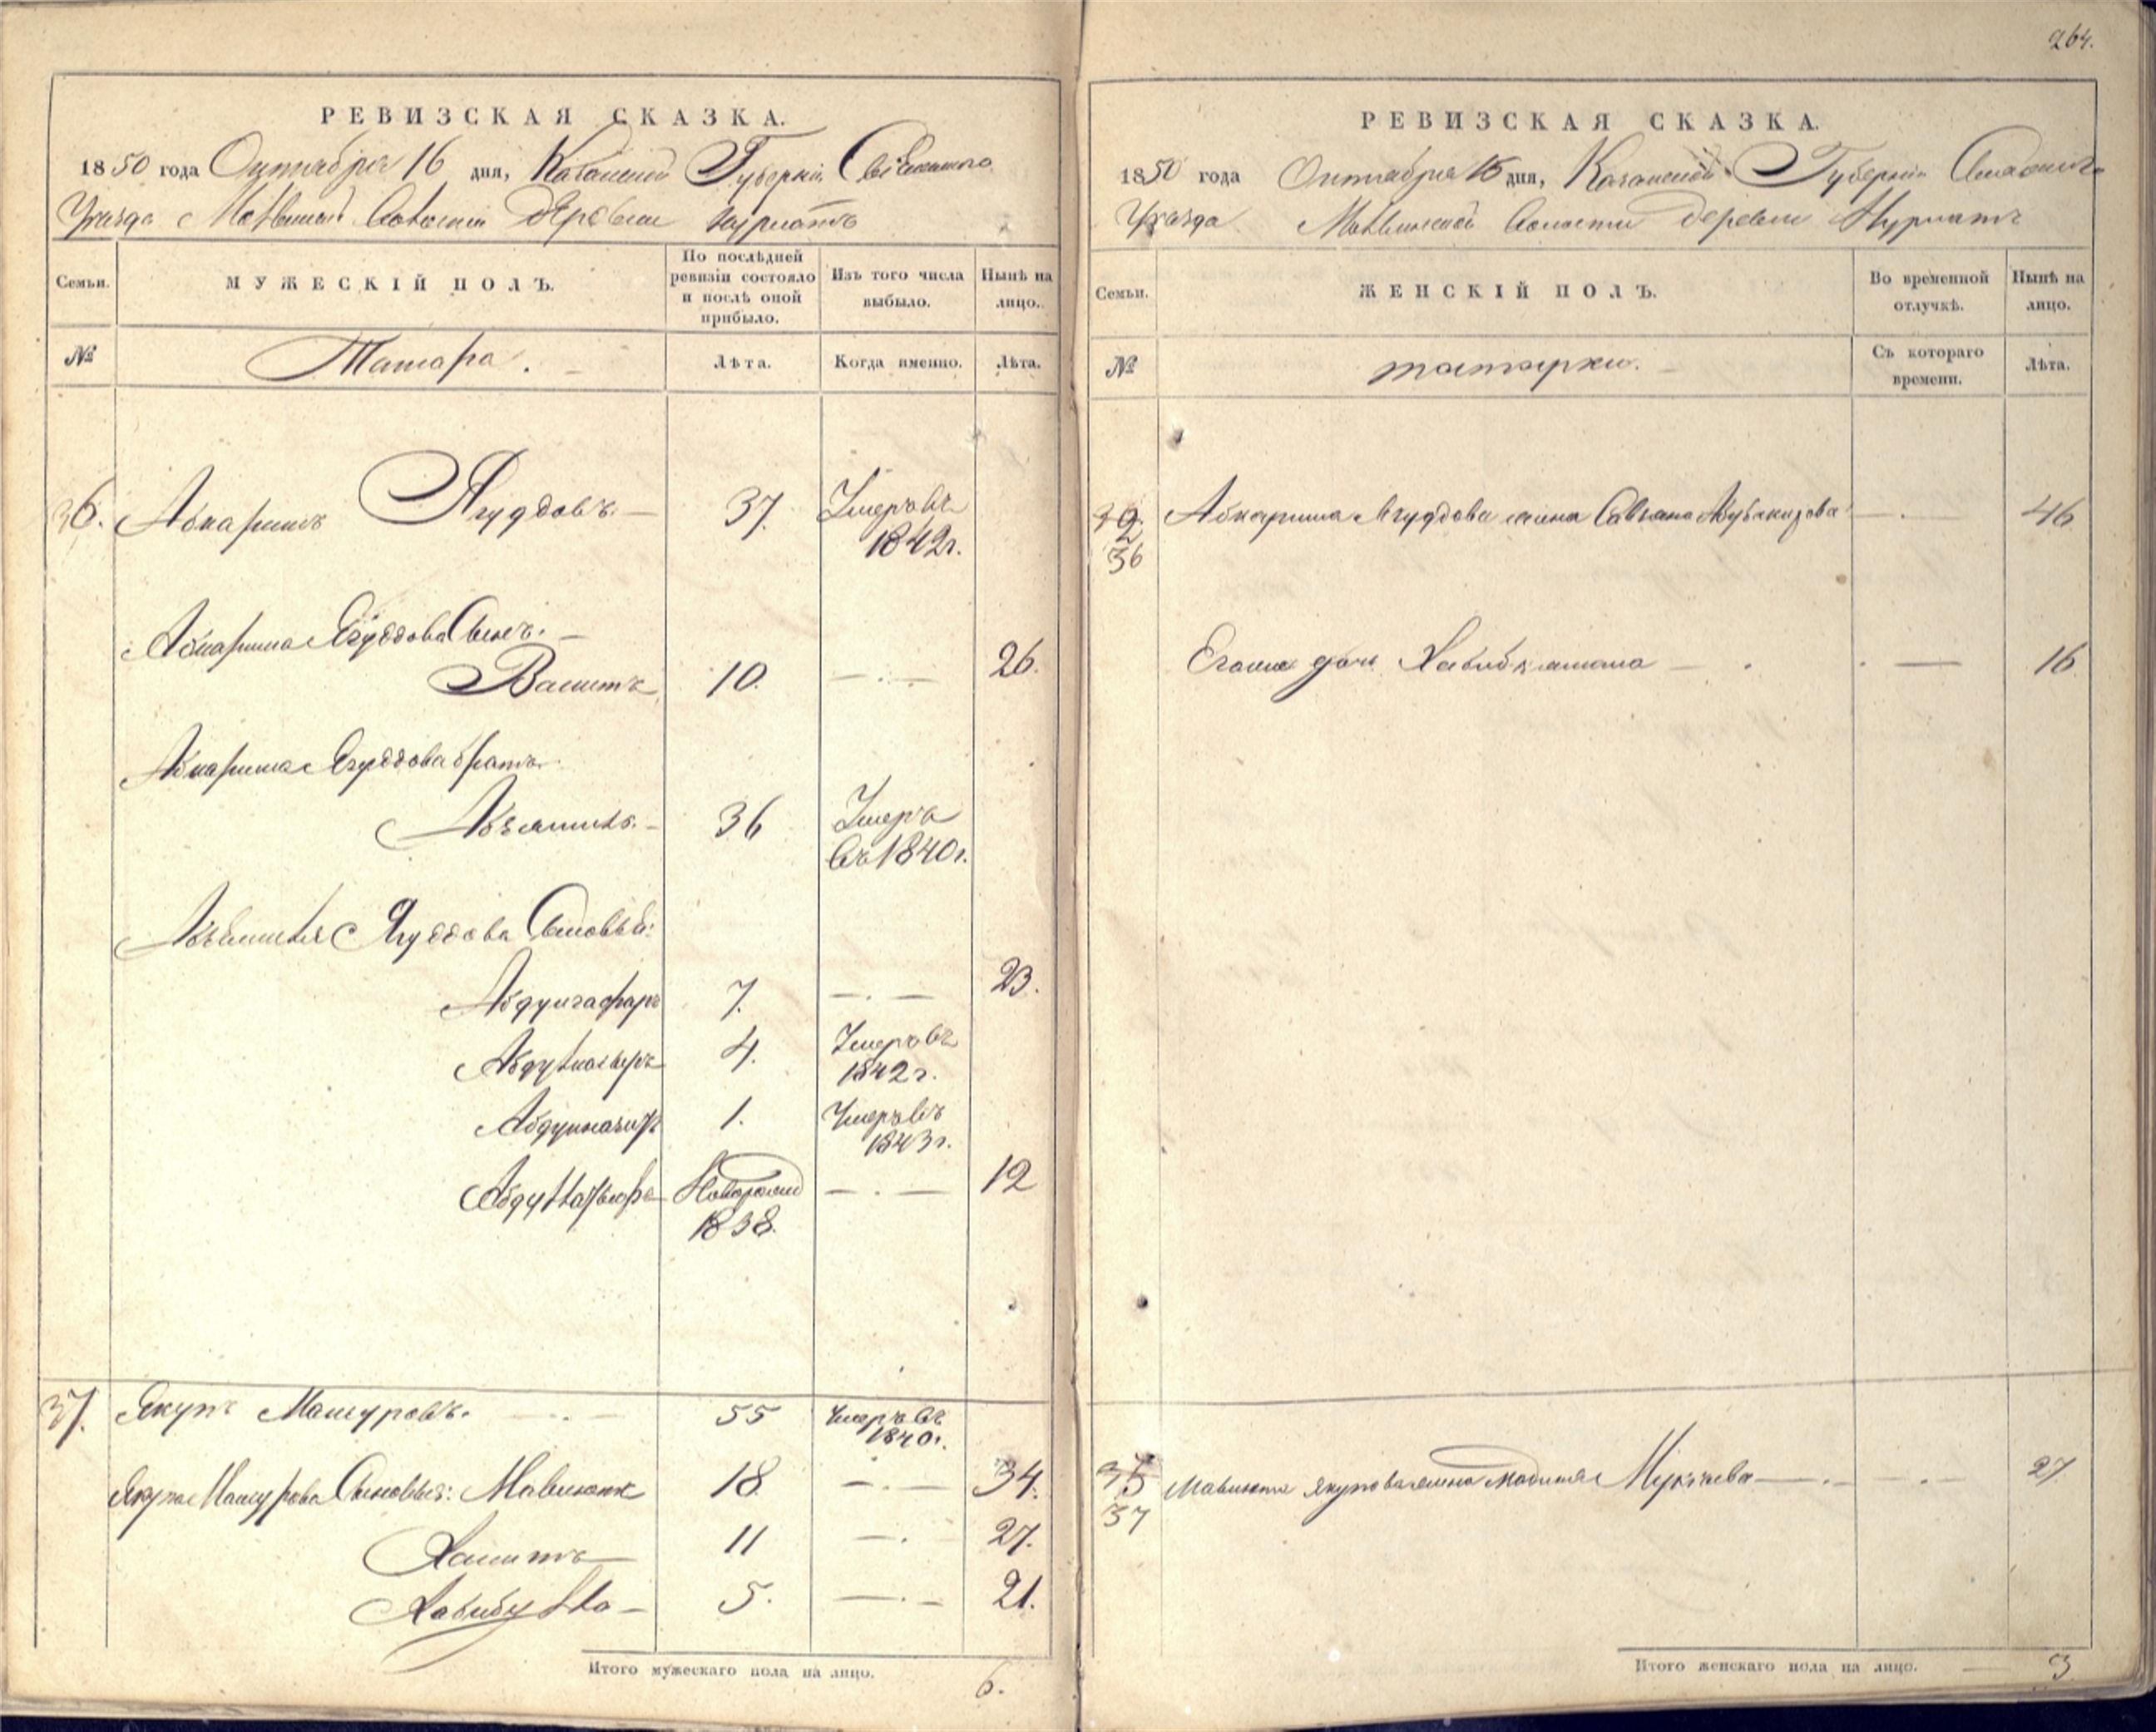 264.
РЕВИЗСКАЯ СКАЗКА.
1850 года Октября 16 дня, Казанской Губерніи Свіяжскаго
Уезда Маквинской Волости Деревни Нурлатъ
Семьи.
МУЖЕСКІЙ ПОЛЪ.
По послѣдней ревизіи состояло и послѣ оной прибыло.
Изъ того числа выбыло.
Нынѣ на лицо.
№
Татара.
Лѣта.
Когда именно.
Лѣта.
36. Абкаримъ Ягудовъ.— 37. Умеръ въ
1842 г.
Абкарима Ягудова Сынъ.—
Вашитъ 10. —.— 26.
Абкарима Ягудова братъ.
36 Умеръ
въ 1840 г.
Ягудова Сыновья:
Абдулгафаръ 7. —.— 23.
4. Умеръ въ
1842 г.
1. Умеръ въ
1843 г.
Новорожд —.— 12
1838.
37. Якупъ Мансуровъ. 55 Умеръ въ
1840 г.
Якупа Мансурова Сыновья: Мавлюкъ 18 —.— 34.
Хамитъ 11 —. 27.
Хабибулла— 5. —.— 21.
Итого мужескаго пола на лицо. 6.
РЕВИЗСКАЯ СКАЗКА.
1850 года Октября 16 дня, Казанской Губерніи Свіяжскаго
Уезда Маквинской Волости Деревни Нурлатъ
Семьи.
ЖЕНСКІЙ ПОЛЪ.
Во временной отлучкѣ.
Нынѣ на лицо.
№
татарки.
Съ котораго времени.
Лѣта.
36 Абкарима Ягудова жена —.— 46
Его дочь — 16
37 Якупова жена —.— 27
Итого женскаго пола на лицо. — 3